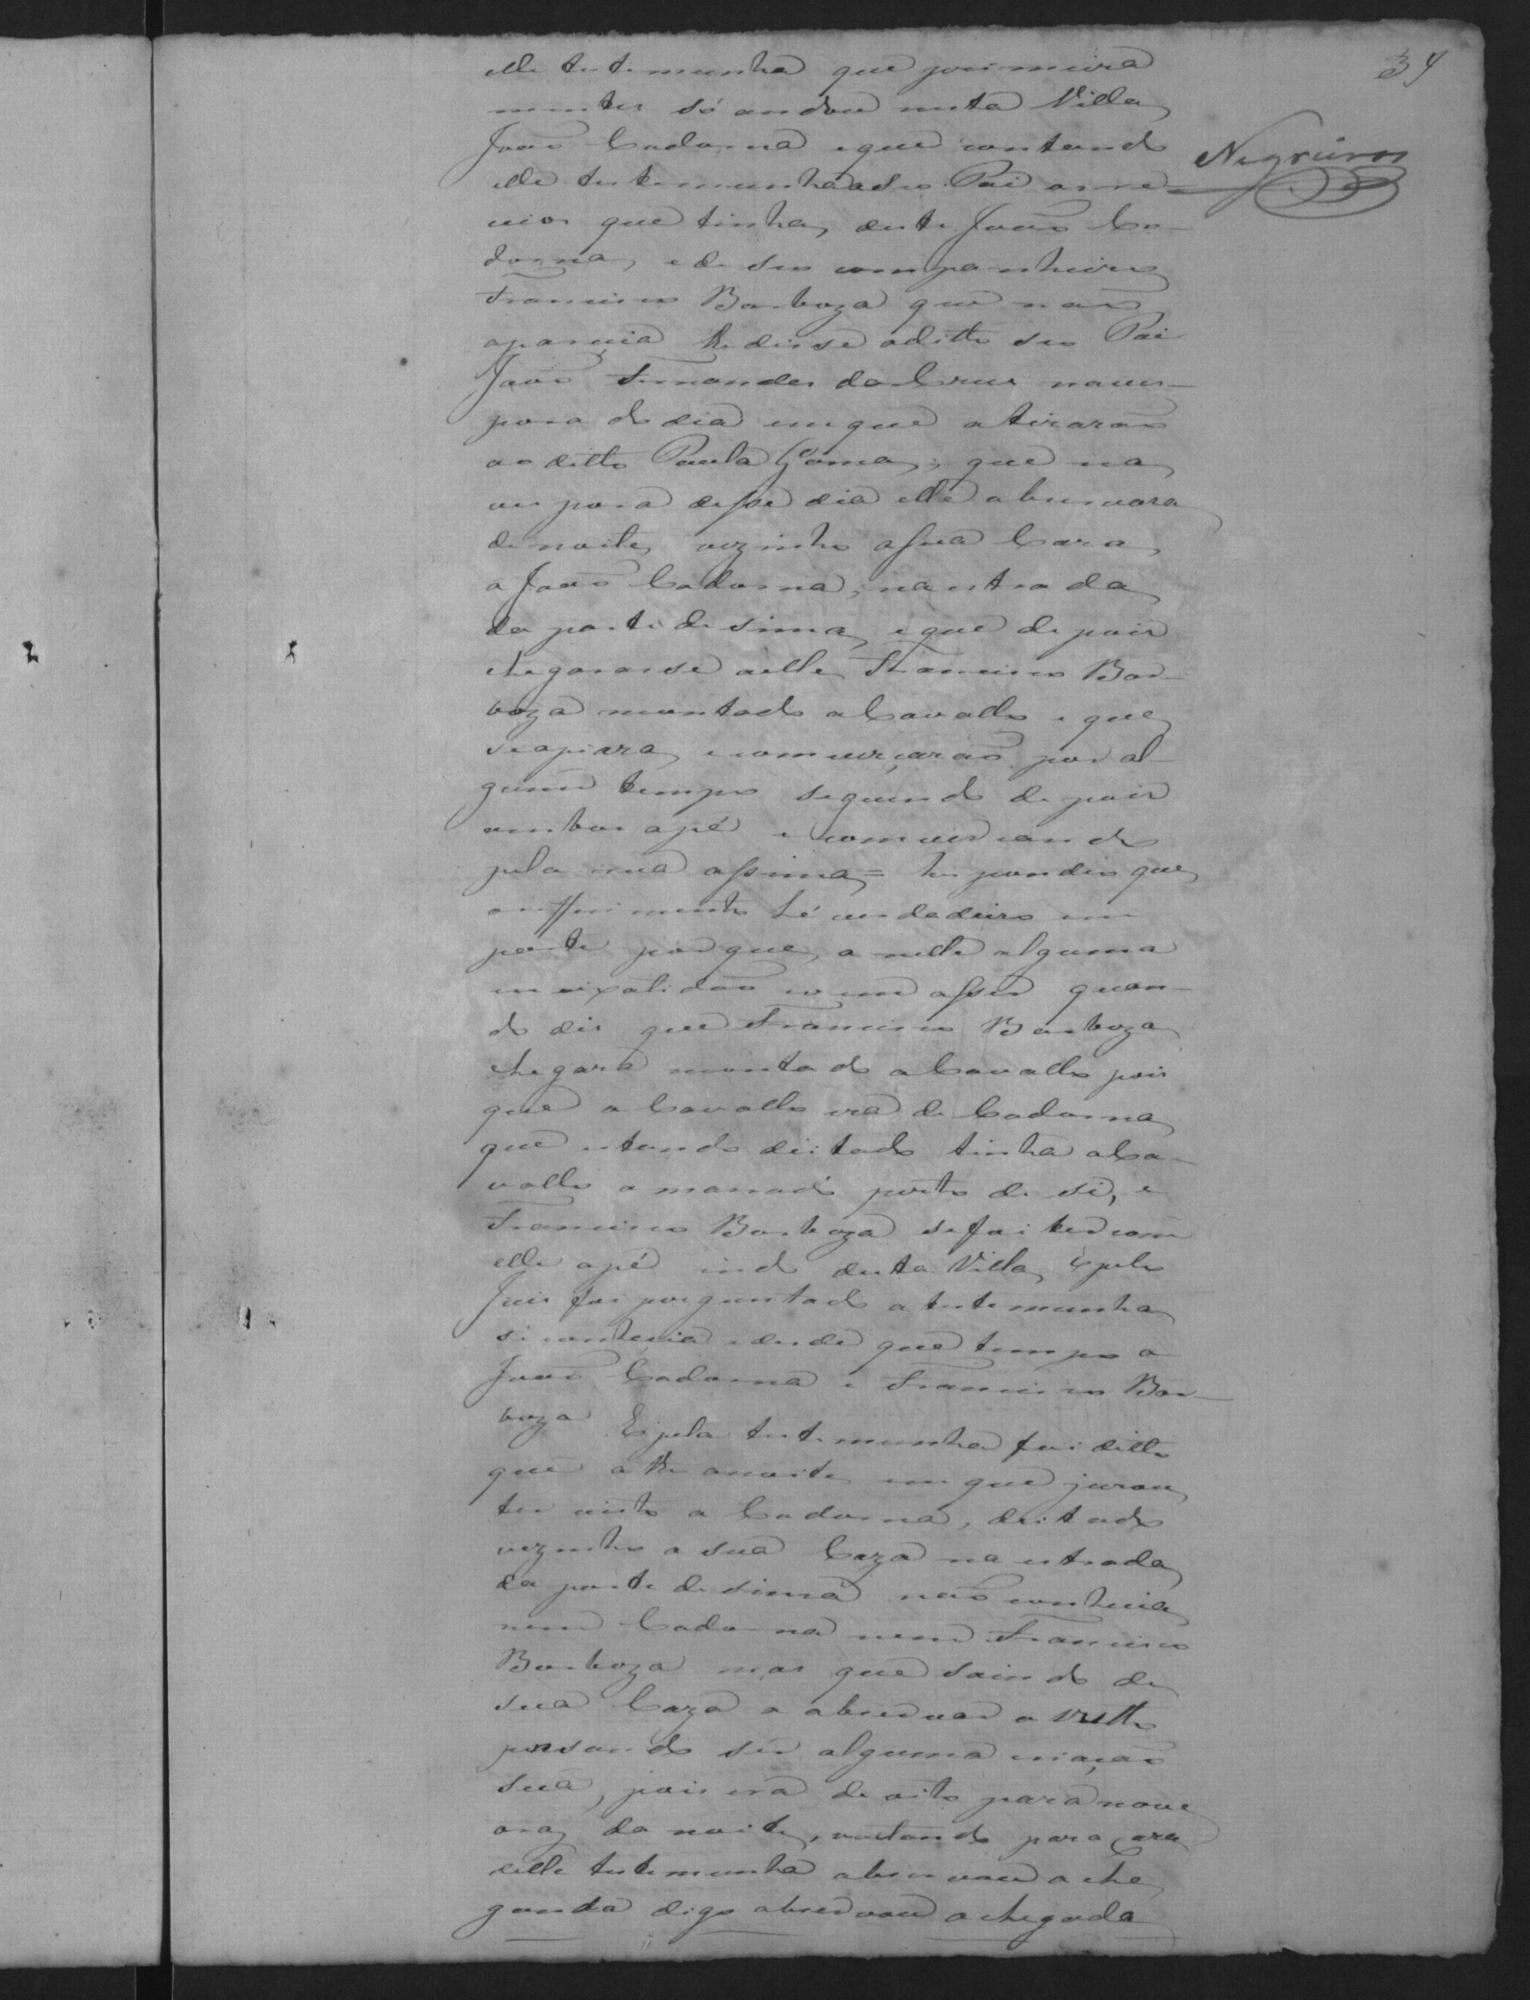 34
Negreiros
elle testemunha que primeira
mentes só andou nesta Villa
João Cadorna e que contando
elle testemunha a seo Pai os re
ceios que tinha, deste João Ca-
dorna, e de seo companheiro
Francisco Barboza que não
aparecia lhe disse o ditto seo Pai
João Fernandes da Crus na ves-
pora do dia em que atirarão
ao ditto Paula Gomes; que na
vespora desse dia elle observara
de noite, vezinho a sua Caza,
a João Cadorna, na estrada
da parte de sima, e que depois
chegarase a elle Francisco Bar-
boza montado a Cavallo e que
se apiara, e comverçarão por al
gum tempo seguindo depois
ambos a pé e comversando
pela rua assima = Respondeo que
o refferimento hé verdadeiro em
parte porque, a nelle alguma
inexatidão como asser quan-
do dis que Francisco Barboza
chegara montado a Cavallo pois
que o Cavallo era de Cadorna
que estando deitado tinha o Ca-
vallo amarrado perto de si, e
Francisco Barboza se foi ter com
elle a pé indo desta Villa, E pelo
Juis foi perguntado a testemunha
si conhecia e desde que tempo a
João Cadorna e Francisco Bar-
boza E pela testemunha foi ditto
que athe a noite em que jurou
ter visto a Cadorna, deitado
vezinho a sua Caza na estrada
da parte de sima não conhecia
nem Cadorna nem Francisco
Barboza mas que saindo de
sua Caza a observar o vulto
pensando ser alguma criação
sua, pois era de oito para nove
oras da noite, voltando para caza
elle testemunha observou a che
ganda digo observou a chegada